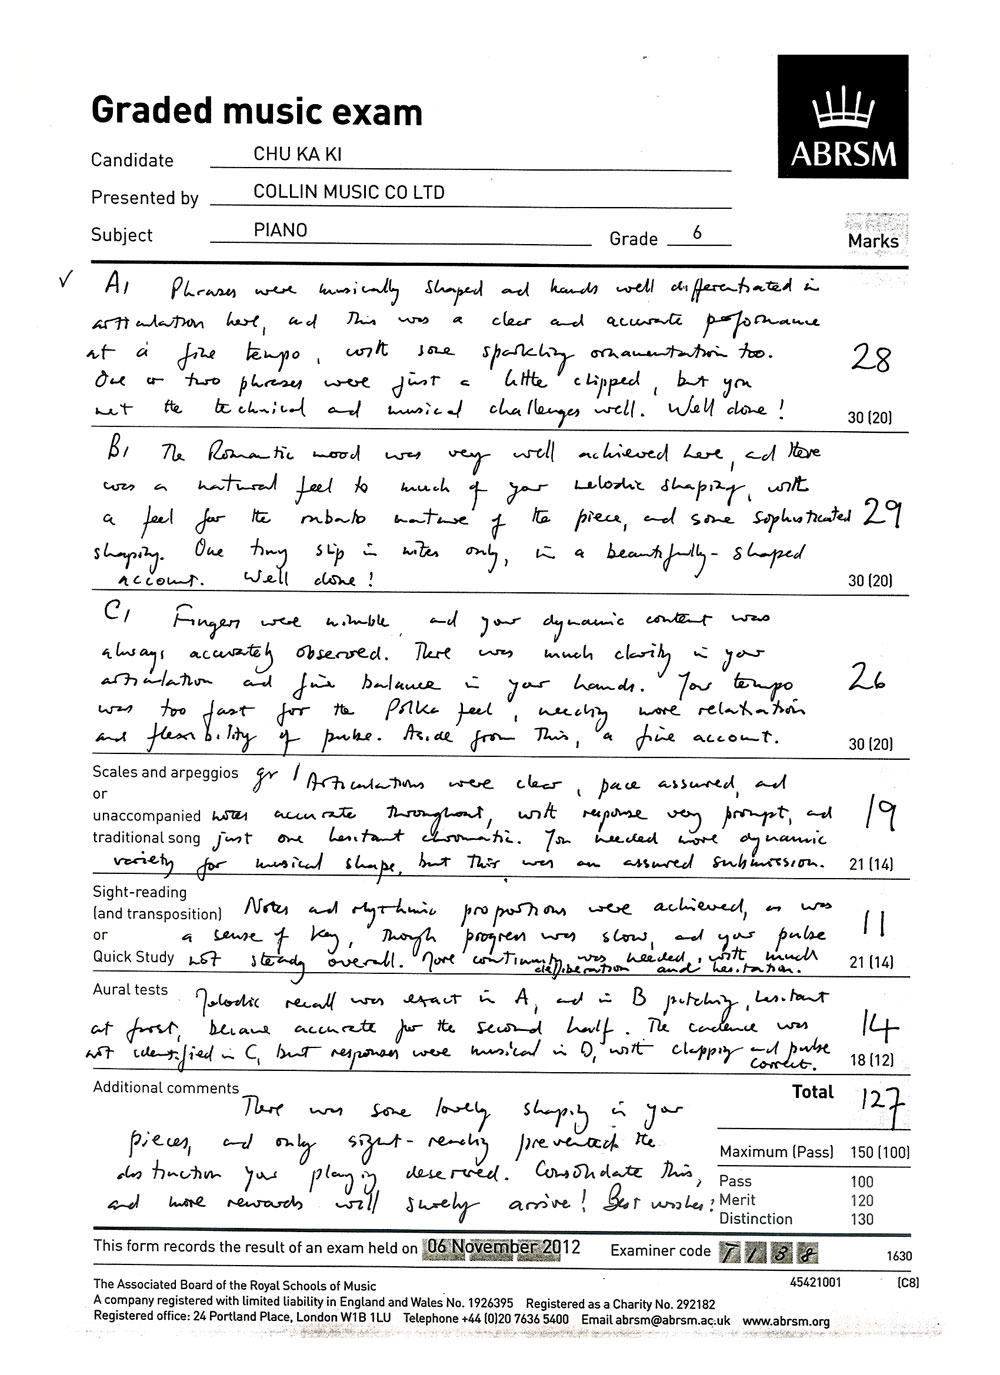 Graded music exam
ABRSM
Candidate CHU KA KI
Presented by COLLIN MUSIC CO LTD
Subject PIANO Grade 6
Marks
✓ A1 Phrases were musically shaped and hands well differentiated in
articulation here, and this was a clear and accurate performance
at a fine tempo, with some sparkling ornamentation too. 28
One or two phrases were just a little clipped, but you
met the technical and musical challenges well. Well done! 30 (20)
B1 The Romantic mood was very well achieved here, and there
was a natural feel to much of your melodic shaping, with
a feel for the rubato nature of the piece, and some sophisticated 29
shaping. One tiny slip in notes only, in a beautifully-shaped
account. Well done! 30 (20)
C1 Fingers were nimble, and your dynamic content was
always accurately observed. There was much clarity in your
articulation and fine balance in your hands. Your tempo 26
was too fast for the Polka feel, needing more relaxation
and flexibility of pulse. Aside from this, a fine account. 30 (20)
Scales and arpeggios gr 1 Articulations were clear, pace assured, and
or
unaccompanied notes accurate throughout, with response very prompt, and 19
traditional song just one hesitant chromatic. You needed more dynamic
variety for musical shape, but this was an assured submission. 21 (14)
Sight-reading
(and transposition) Notes and rhythmic proportions were achieved, as was 11
or a sense of key, though progress was slow, and your pulse
Quick Study not steady overall. More continuity was needed, with much 21 (14)
deliberation and hesitation.
Aural tests Melodic recall was exact in A, and in B pitching, hesitant
at first, became accurate for the second half. The cadence was 14
not identified in C, but responses were musical in D, with clapping and pulse 18 (12)
correct.
Additional comments Total 127
There was some lovely shaping in your
pieces, and only sight-reading prevented the
Maximum (Pass) 150 (100)
distinction your playing deserved. Consolidate this,
Pass 100
and more rewards will surely arrive! Best wishes!
Merit 120
Distinction 130
This form records the result of an exam held on 06 November 2012 Examiner code T 1 3 8 1630
The Associated Board of the Royal Schools of Music 45421001 (C8)
A company registered with limited liability in England and Wales No. 1926395 Registered as a Charity No. 292182
Registered office: 24 Portland Place, London W1B 1LU Telephone +44 (0)20 7636 5400 Email abrsm@abrsm.ac.uk www.abrsm.org